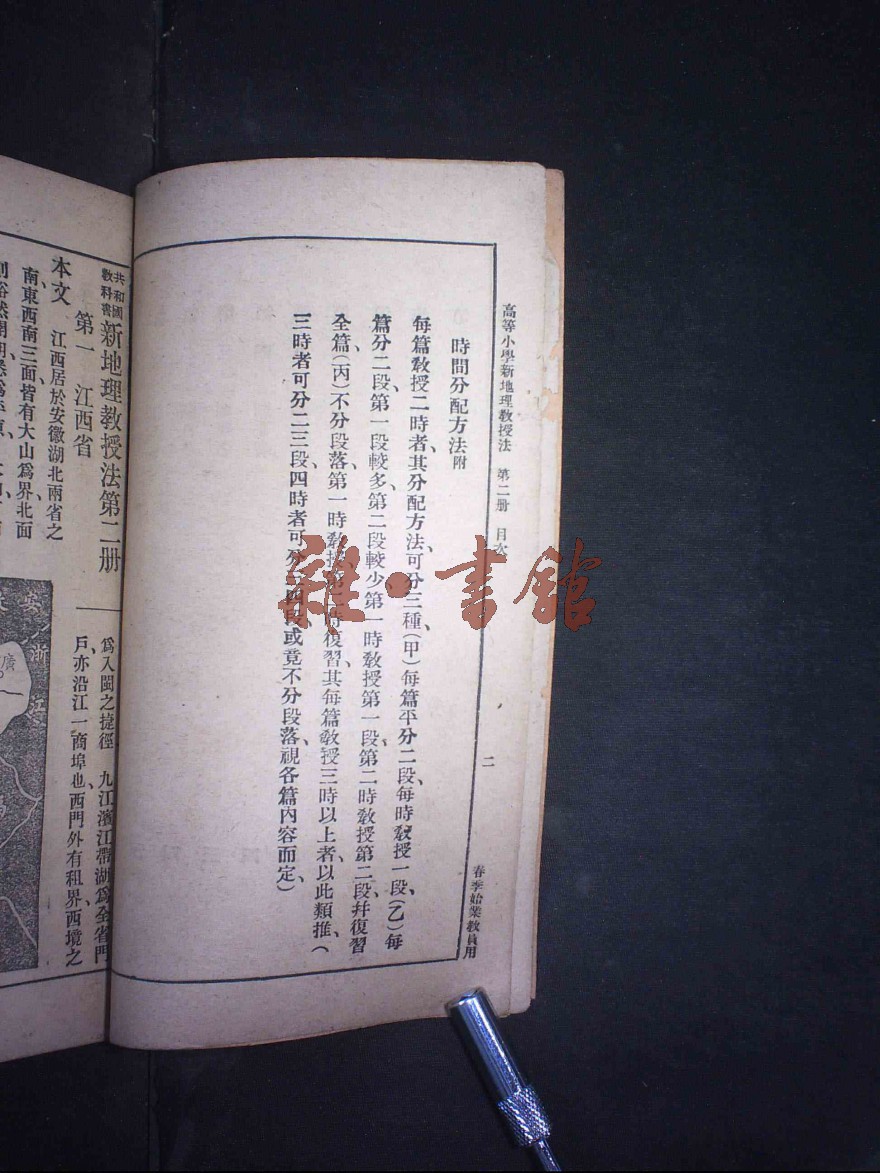 高等小學新地理敎授法 第二册 目次
二
春季始業敎員用
時間分配方法附
每篇敎授二時者、其分配方法、可分三種、(甲)每篇平分二段、每時敎授一段、(乙)每
篇分二段、第一段較多、第二段較少、第一時敎授第一段、第二時敎授第二段、幷復習
全篇、(丙)不分段落、第一時敎授、第二時復習、其每篇敎授三時以上者、以此類推、(
三時者可分二三段、四時者可分三四段、或竟不分段落、視各篇內容而定、)
共和國敎科書 新地理敎授法第二册
第一 江西省
本文 江西居於安徽湖北兩省之
南、東西南三面、皆有大山爲界、北面
爲入閩之捷徑、 九江濱江帶湖、爲全省門
戶、亦沿江一商埠也、西門外有租界、西境之
雜·書館